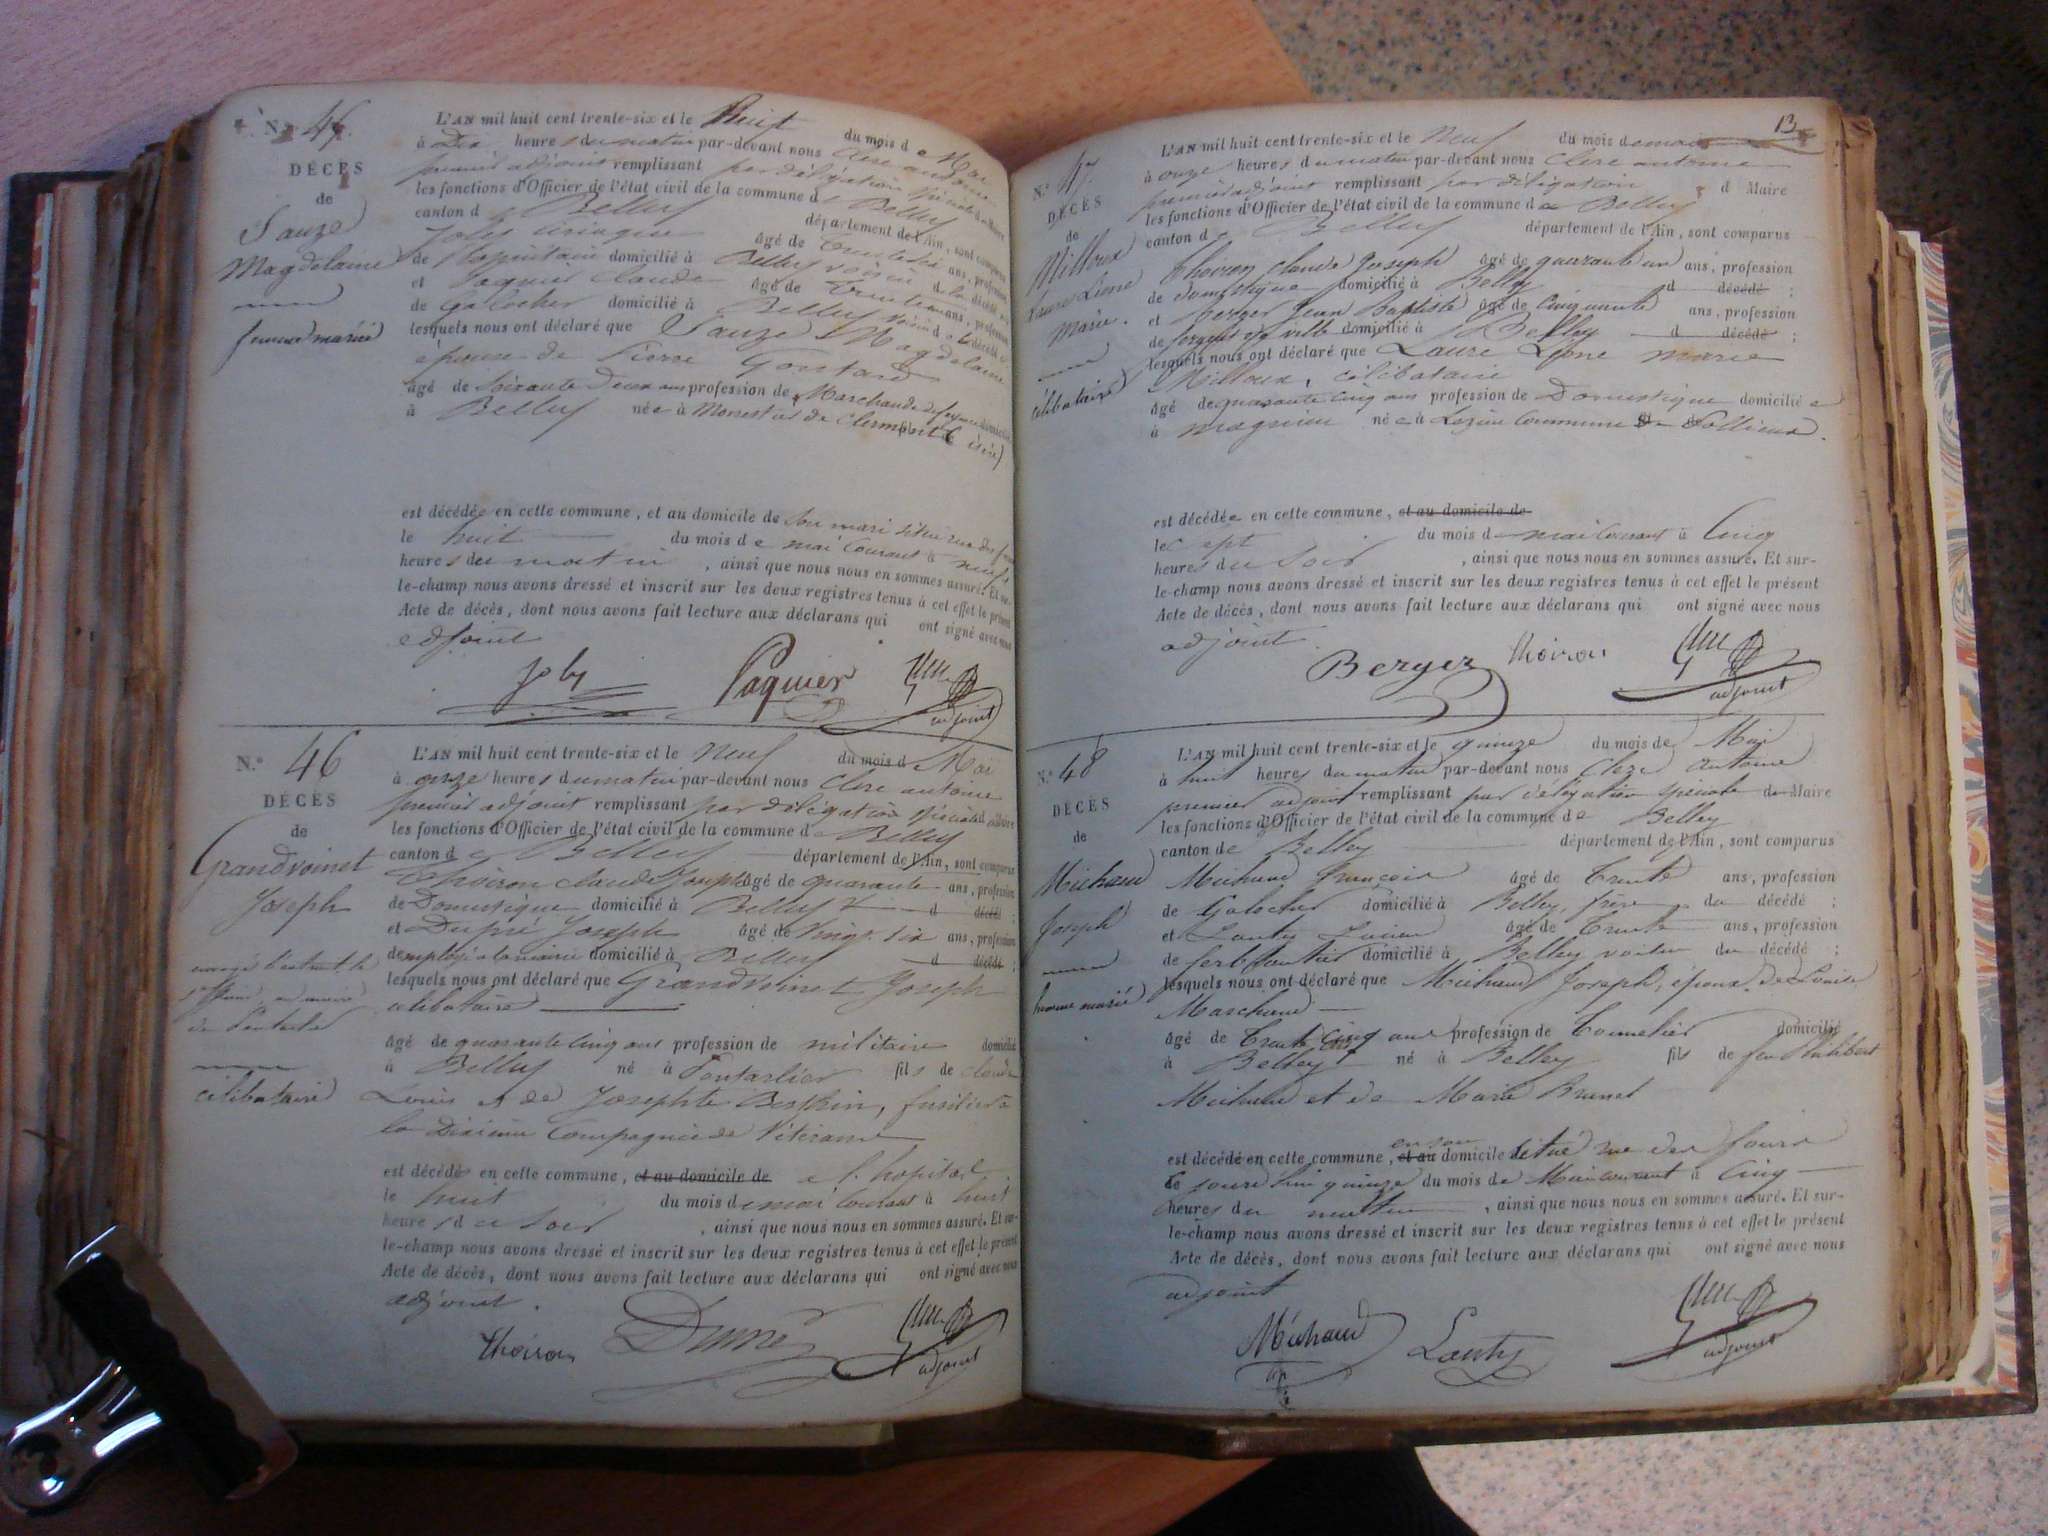 N.° 45.
DÉCÈS
de
Sauze
Magdelaine
femme mariée
L'AN mil huit cent trente-six et le huit du mois de Mai
à Dix heures du matin par-devant nous Clerc antoine
premier adjoint remplissant par délégation spéciale du Maire
les fonctions d'Officier de l'état civil de la commune de Belley
canton de Belley département de l'Ain, sont comparus
Joly âgé de ans, profession
de domicilié à Belley voisin de la décédée
et Paquier Claude âgé de ans, profession
de galocher domicilié à Belley voisin de la décédée
lesquels nous ont déclaré que Sauze Magdelaine
épouse de Pierre Goutard
âgé de soixante deux ans profession de Marchande domiciliée
à Belley née à Monestier de Clermont (isère)
est décédée en cette commune, et au domicile de son mari situé rue des
le huit du mois de mai Courant à neuf
heures du matin, ainsi que nous nous en sommes assuré. Et sur-
le-champ nous avons dressé et inscrit sur les deux registres tenus à cet effet le présent
Acte de décès, dont nous avons fait lecture aux déclarans qui ont signé avec nous
adjoint
Joly Paquier Clerc
adjoint
N.° 46
DÉCÈS
de
Grandvoinet
Joseph
célibataire
L'AN mil huit cent trente-six et le neuf du mois d Mai
à onze heures du matin par-devant nous Clerc antoine
premier adjoint remplissant par délégation spéciale d Maire
les fonctions d'Officier de l'état civil de la commune de Belley
canton de Belley département de l'Ain, sont comparus
Thoiron claude Joseph âgé de quarante ans, profession
de Domestique domicilié à Belley d décédé ;
et Dupré Joseph âgé de vingt six ans, profession
d'employé à la mairie domicilié à Belley d décédé ;
lesquels nous ont déclaré que Grandvoinet Joseph
célibataire
âgé de quarante cinq ans profession de militaire domicilié
à Belley né à Pontarlier fils de claude
Louis et de Josephte fusilier à
la Dixième Compagnie de Vétérans
est décédé en cette commune, et au domicile de a l'hopital
le huit du mois de mai Courant à huit
heures du soir, ainsi que nous nous en sommes assuré. Et sur-
le-champ nous avons dressé et inscrit sur les deux registres tenus à cet effet le présent
Acte de décès, dont nous avons fait lecture aux déclarans qui ont signé avec nous
adjoint.
Thoiron Dupré Clerc
adjoint
13
N.° 47.
DÉCÈS
de
Milloux
Laure Lione
Marie.
célibataire
L'AN mil huit cent trente-six et le neuf du mois de mai
à onze heures du matin par-devant nous Clerc antoine
premier adjoint remplissant par délégation d Maire
les fonctions d'Officier de l'état civil de la commune de Belley
canton de Belley département de l'Ain, sont comparus
Thoiron claude Joseph âgé de quarante un ans, profession
de domestique domicilié à Belley d décédé ;
et Berger Jean Baptiste âgé de Cinquante ans, profession
de sergent de ville domicilié à Belley d décédé ;
lesquels nous ont déclaré que Laure Lione marie
Milloux, célibataire
âgé de quarante cinq ans profession de Domestique domiciliée
à magnieu née à Commune de Pollieux.
est décédée en cette commune, et au domicile de
le sept du mois de mai Courant à Cinq
heures du soir, ainsi que nous nous en sommes assuré. Et sur-
le-champ nous avons dressé et inscrit sur les deux registres tenus à cet effet le présent
Acte de décès, dont nous avons fait lecture aux déclarans qui ont signé avec nous
adjoint.
Berger Thoiron Clerc
adjoint
N.° 48
DÉCÈS
de
Michaud
Joseph
homme marié
L'AN mil huit cent trente-six et le quinze du mois de Mai
à huit heures du matin par-devant nous Clerc Antoine
premier adjoint remplissant par délégation spéciale de Maire
les fonctions d'Officier de l'état civil de la commune de Belley
canton de Belley département de l'Ain, sont comparus
Michaud françois âgé de Trente ans, profession
de Galocher domicilié à Belley, frère du décédé ;
et Lanty âgé de Trente ans, profession
de ferblantier domicilié à Belley voisin du décédé ;
lesquels nous ont déclaré que Michaud Joseph, époux de
Marchand
âgé de Trente cinq ans profession de Tonnelier domicilié
à Belley né à Belley fils de feu Philibert
Michaud et de Marie Brunet
est décédé en cette commune, et au en son domicile situé rue des fours
le jourd'hui quinze du mois de Mai courant à Cinq
heures du matin, ainsi que nous nous en sommes assuré. Et sur-
le-champ nous avons dressé et inscrit sur les deux registres tenus à cet effet le présent
Acte de décès, dont nous avons fait lecture aux déclarans qui ont signé avec nous
adjoint
Michaud Lanty Clerc
adjoint